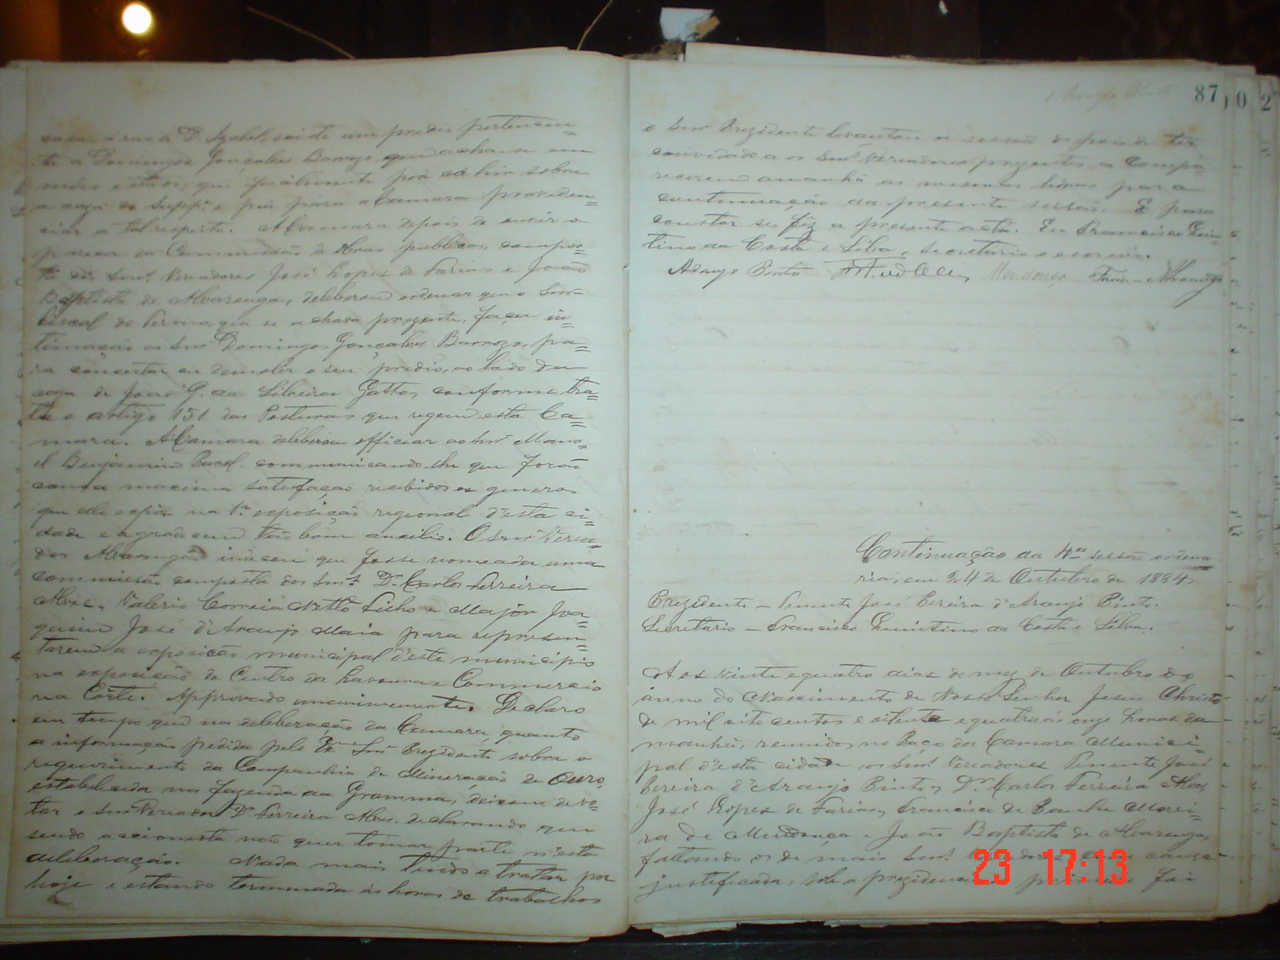 casa á rua de D. Izabel, existe um predio pertencen=
te a Domingos Gonçalves Barrozo que acha-se em
máo estado, que facilmente póde cahir sobre
a caza do Suppe e pede para a Camara providen=
ciar a tal respeito. A Camara depois de ouvir o
parecer da Commissão de Obras publicas, compos=
ta dos Snrs. Vereadores José Lopes de Farias e João
Baptista de Alvarenga, deliberou ordenar que o Snr.
fiscal do termo, que se achava prezente, faça in=
timação ao Snr. Domingos Gonçalves Barrozo, pa=
ra concertar ou demolir o seu predio, ao lado da
caza de João G. da Silveira Gattos conforme tra=
ta o artigo 151 das Posturas que regem esta Ca=
mara. A Camara deliberou officiar ao Snr. Mano=
el Benjamin communicando-lhe que forão
com a maxima satisfação recebidos os generos
que elle expôz na 1ª exposição regional d'esta ci=
dade e agradecem tão bom auxilio. O Snr. Verea=
dor Alvarenga indicou que fosse nomeada uma
commissão composta dos Snrs. Dr. Carlos Ferreira
Alves, Valerio Correia Netto Filho e Major Joa=
quim José d'Araujo Maia para represen=
tarem a exposição municipal d'este municipio
na exposição do Centro da Lavoura e Commercio
na Côrte. Approvado unanimemente. Declaro
em tempo que na deliberação da Camara quanto
a informação pedida pelo Snr. Prezidente sobre o
requerimento da Companhia de Mineração de Ouro,
estabelecida na fazenda da Gramma, deixou de vo=
tar o Snr. Vereador Dr. Ferreira Alves, declarando que
sendo accionista não quer tomar parte n'esta
deliberação. Nada mais tendo a tratar por
hoje e estando terminada as horas de trabalhos
87
0
2
o Snr. Prezidente levantou a sessão depois de ter
convidado a os Snrs. Vereadores prezentes a compa=
recerem amanhã as mesmas horas para
continuação da presente sessão. E para
constar se fez a presente acta. Eu Francisco Quin=
tino da Costa e Silva, secretario o escrevi.
Araujo Pinto Mendonça Farias Alvarenga
Continuação da 4ª sessão ordena
ria, em 24 de Outubro de 1884.
Prezidente – Tenente José Pereira d'Araujo Pinto.
Secretario – Francisco Quintino da Costa e Silva.
Aos vinte e quatro dias do mez de Outubro do
anno do Nascimento de Nosso Senhor Jesus Christo
de mil oito centos e oitenta e quatro as onze horas da
manhã, reunidos no Paço da Camara Munici=
pal d'esta cidade os Snrs. Vereadores Tenente José
Pereira d'Araujo Pinto, Dr. Carlos Ferreira Alves,
José Lopes de Farias, Francisco de Paula Morei=
ra de Mendonça e João Baptista de Alvarenga,
faltando os de mais Snrs. causa
justificada, sob a prezidencia do foi
23 17:13